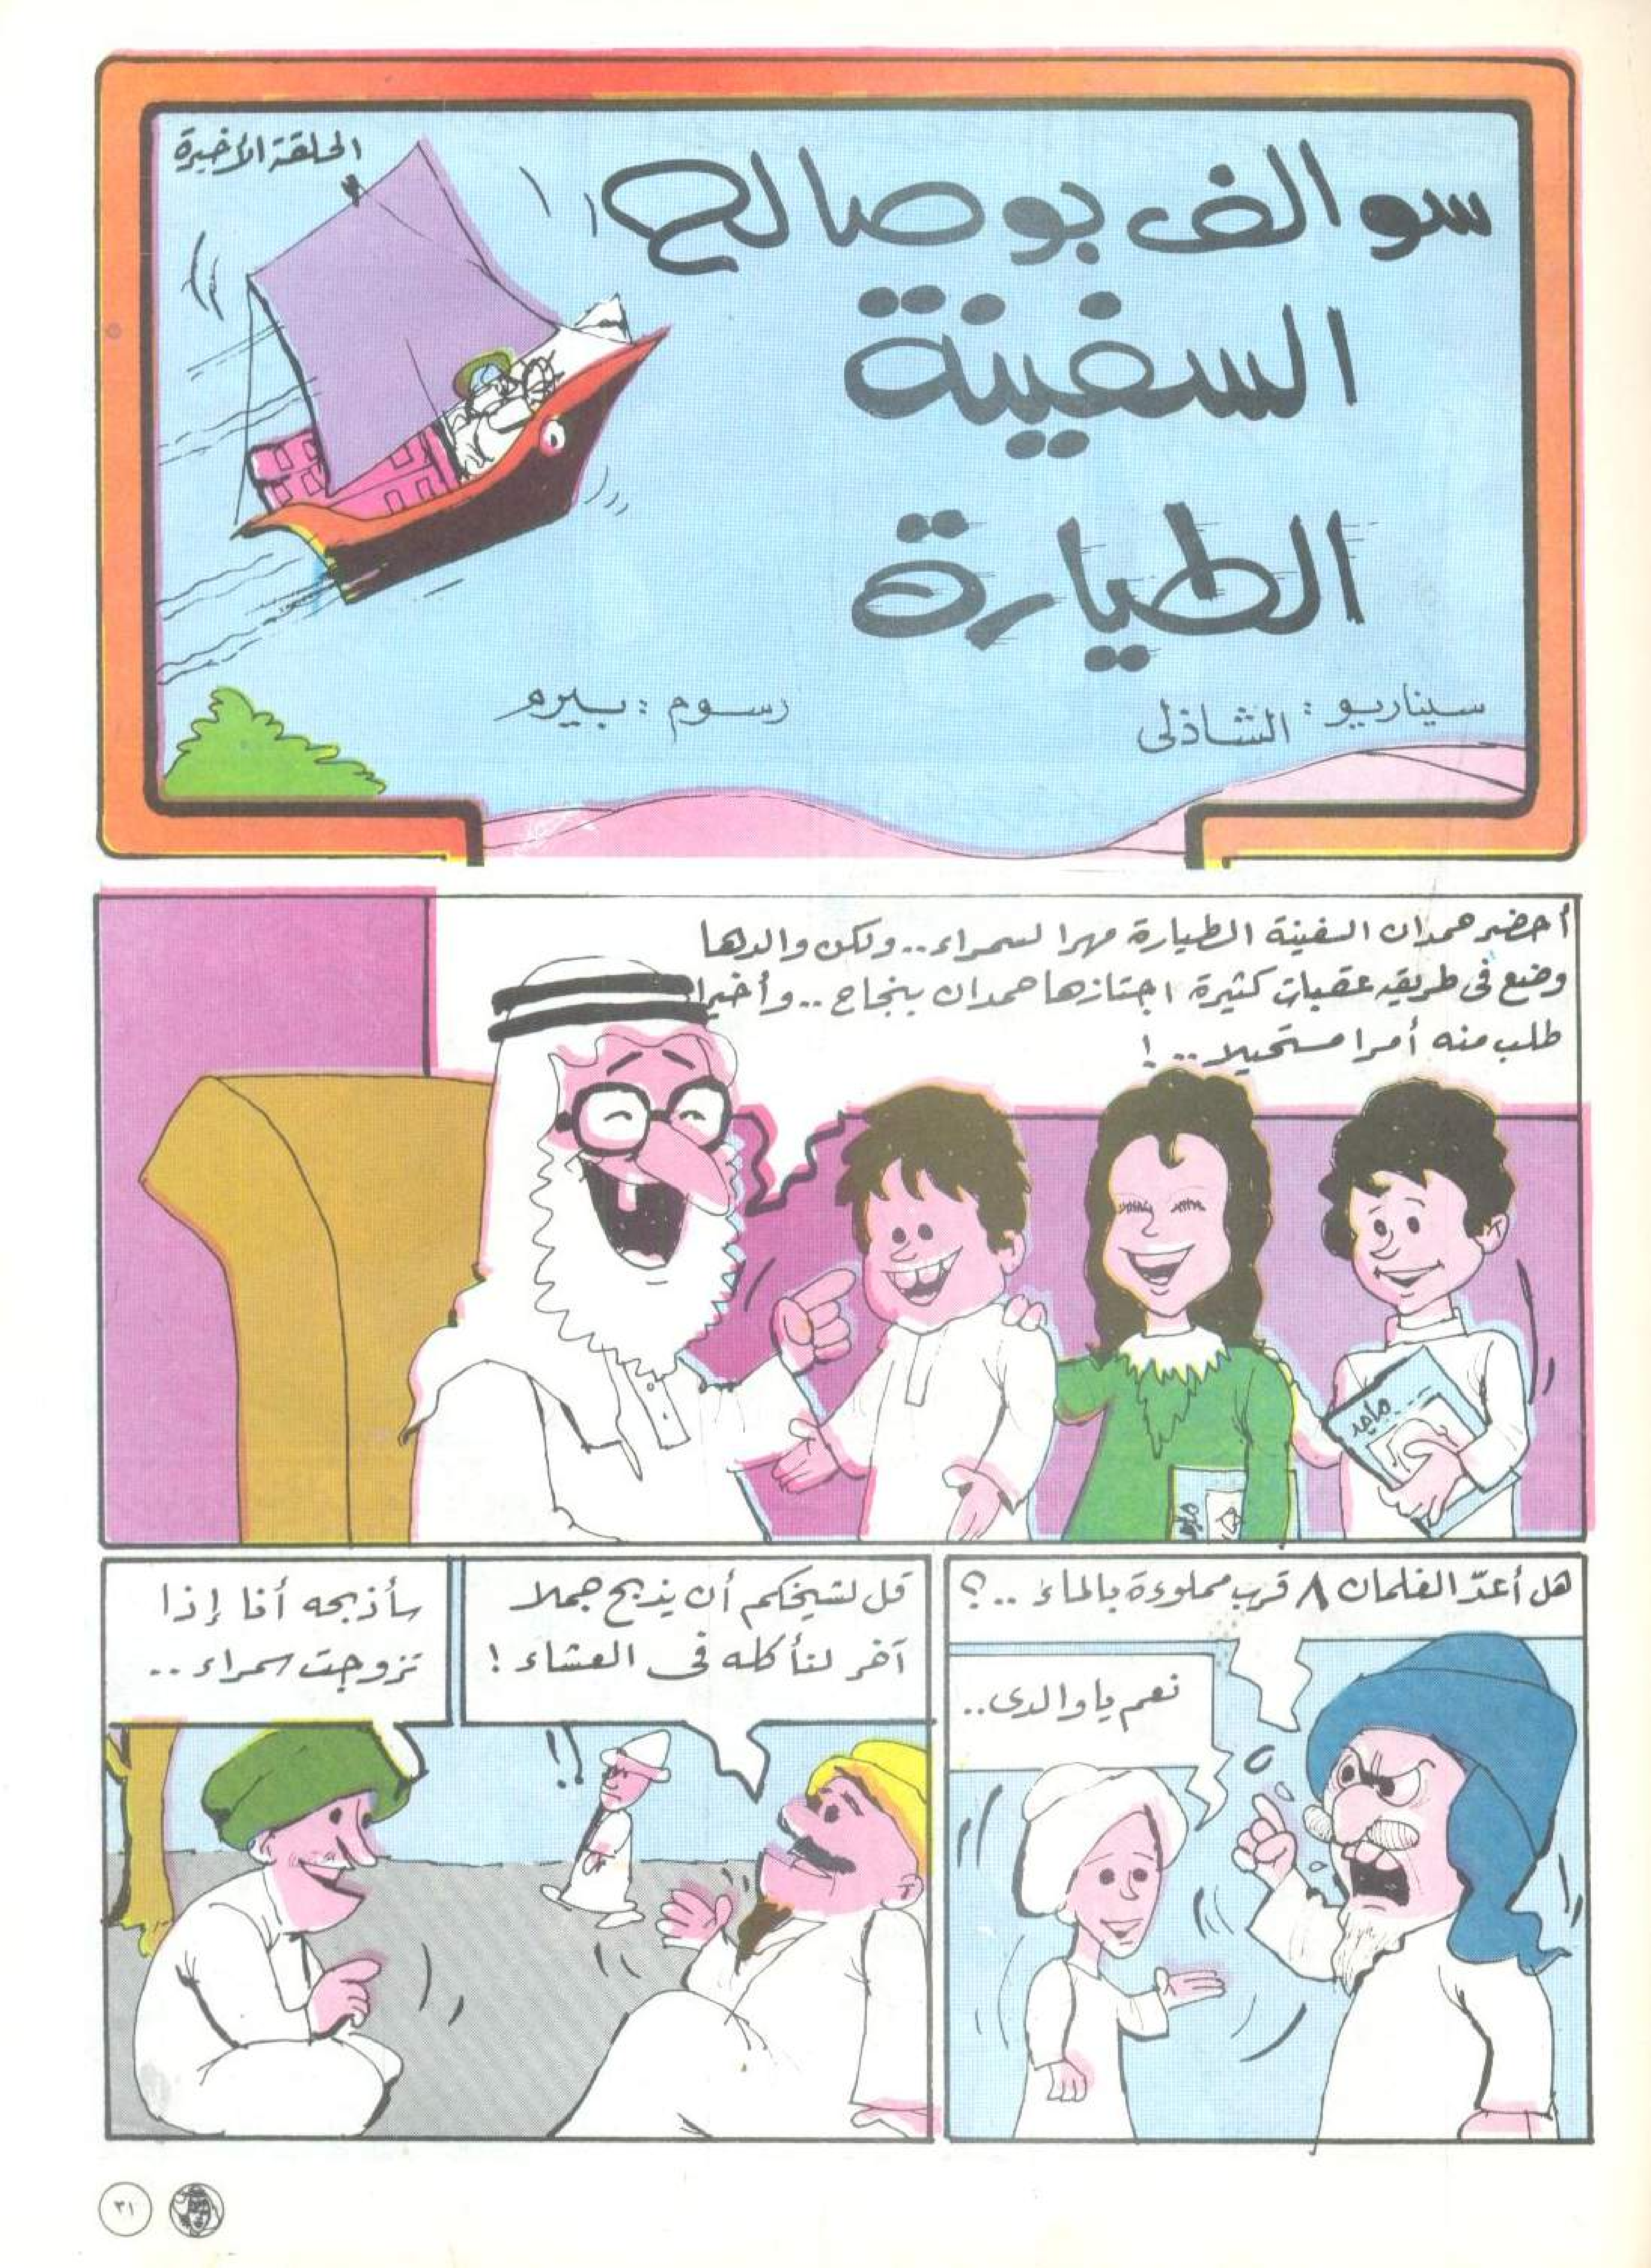 الحلقة الأخيرة
سوالف بوصالح
السفينة
الطيارة
سيناريو : الشاذلى
رسوم : بيرم
أحضر حمدان السفينة الطيارة مهرا لسمراء .. ولكن والدها
وضع فى طريقه عقبات كثيرة اجتازها حمدان بنجاح .. وأخيرا
طلب منه أمرا مستحيلا .. !
ماجد
ماجد
هل أعدّ الغلمان ٨ قرب مملوءة بالماء .. ؟
نعم يا والدى ..
قل لشيخكم أن يذبح جملا
آخر لنأكله فى العشاء !
سأذبحه أنا إذا
تزوجت سمراء ..
!!
٣١